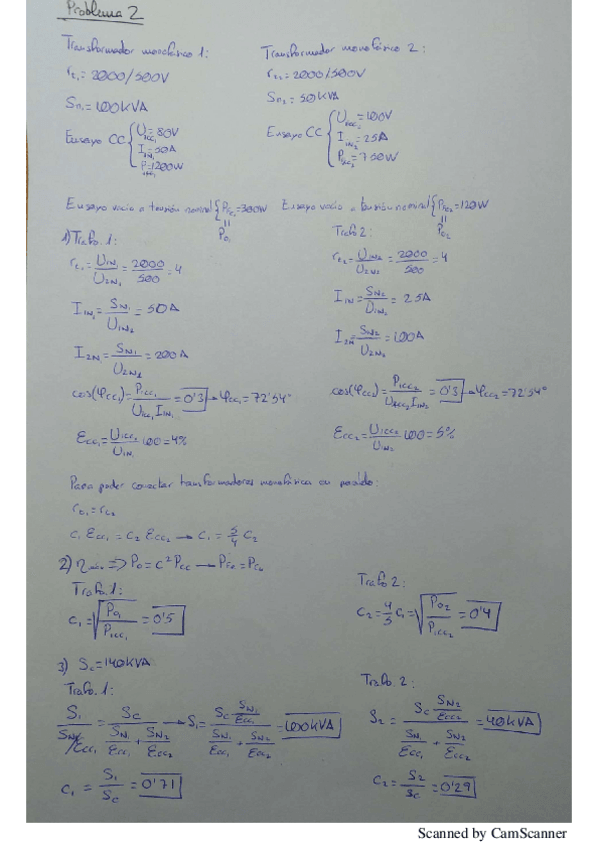 Problema 2
Transformador monofásico 1:
r_t1 = 2000/500V
S_n1 = 100KVA
Ensayo CC { U_1cc1 = 80V
I_1N1 = 50A
P_1cc1 = 1200W
Transformador monofásico 2:
r_t2 = 2000/500V
S_n2 = 50KVA
Ensayo CC { U_1cc2 = 100V
I_1N2 = 25A
P_1cc2 = 750W
Ensayo vacío a tensión nominal { P_Fe1 = 300W
||
P_01
Ensayo vacío a tensión nominal { P_Fe2 = 120W
||
P_02
1) Trafo. 1:
r_t1 = U_1N1/U_2N1 = 2000/500 = 4
I_1N1 = S_N1/U_1N1 = 50A
I_2N = S_N1/U_2N1 = 200A
cos(φ_cc1) = P_1cc1/(U_1cc1 I_1N1) = 0'3 → φ_cc1 = 72'54°
ε_cc1 = U_1cc1/U_1N1 100 = 4%
Trafo 2:
r_t2 = U_1N2/U_2N2 = 2000/500 = 4
I_1N = S_N2/U_1N2 = 25A
I_2N = S_N2/U_2N2 = 100A
cos(φ_cc2) = P_1cc2/(U_1cc2 I_1N2) = 0'3 → φ_cc2 = 72'54°
ε_cc2 = U_1cc2/U_1N2 100 = 5%
Para poder conectar transformadores monofásicos en paralelo:
r_t1 = r_t2
C_1 ε_cc1 = C_2 ε_cc2 → C_1 = 5/4 C_2
2) η_máx => P_0 = C² P_cc → P_Fe = P_Cu
Trafo. 1:
C_1 = √(P_01/P_1cc1) = 0'5
Trafo 2:
C_2 = 4/5 C_1 = √(P_02/P_1cc2) = 0'4
3) S_c = 140KVA
Trafo. 1:
S_1/(S_N1/ε_cc1) = S_c/(S_N1/ε_cc1 + S_N2/ε_cc2) → S_1 = (S_c S_N1/ε_cc1)/(S_N1/ε_cc1 + S_N2/ε_cc2) = 100KVA
C_1 = S_1/S_c = 0'71
Trafo. 2:
S_2 = (S_c S_N2/ε_cc2)/(S_N1/ε_cc1 + S_N2/ε_cc2) = 40KVA
C_2 = S_2/S_c = 0'29
Scanned by CamScanner